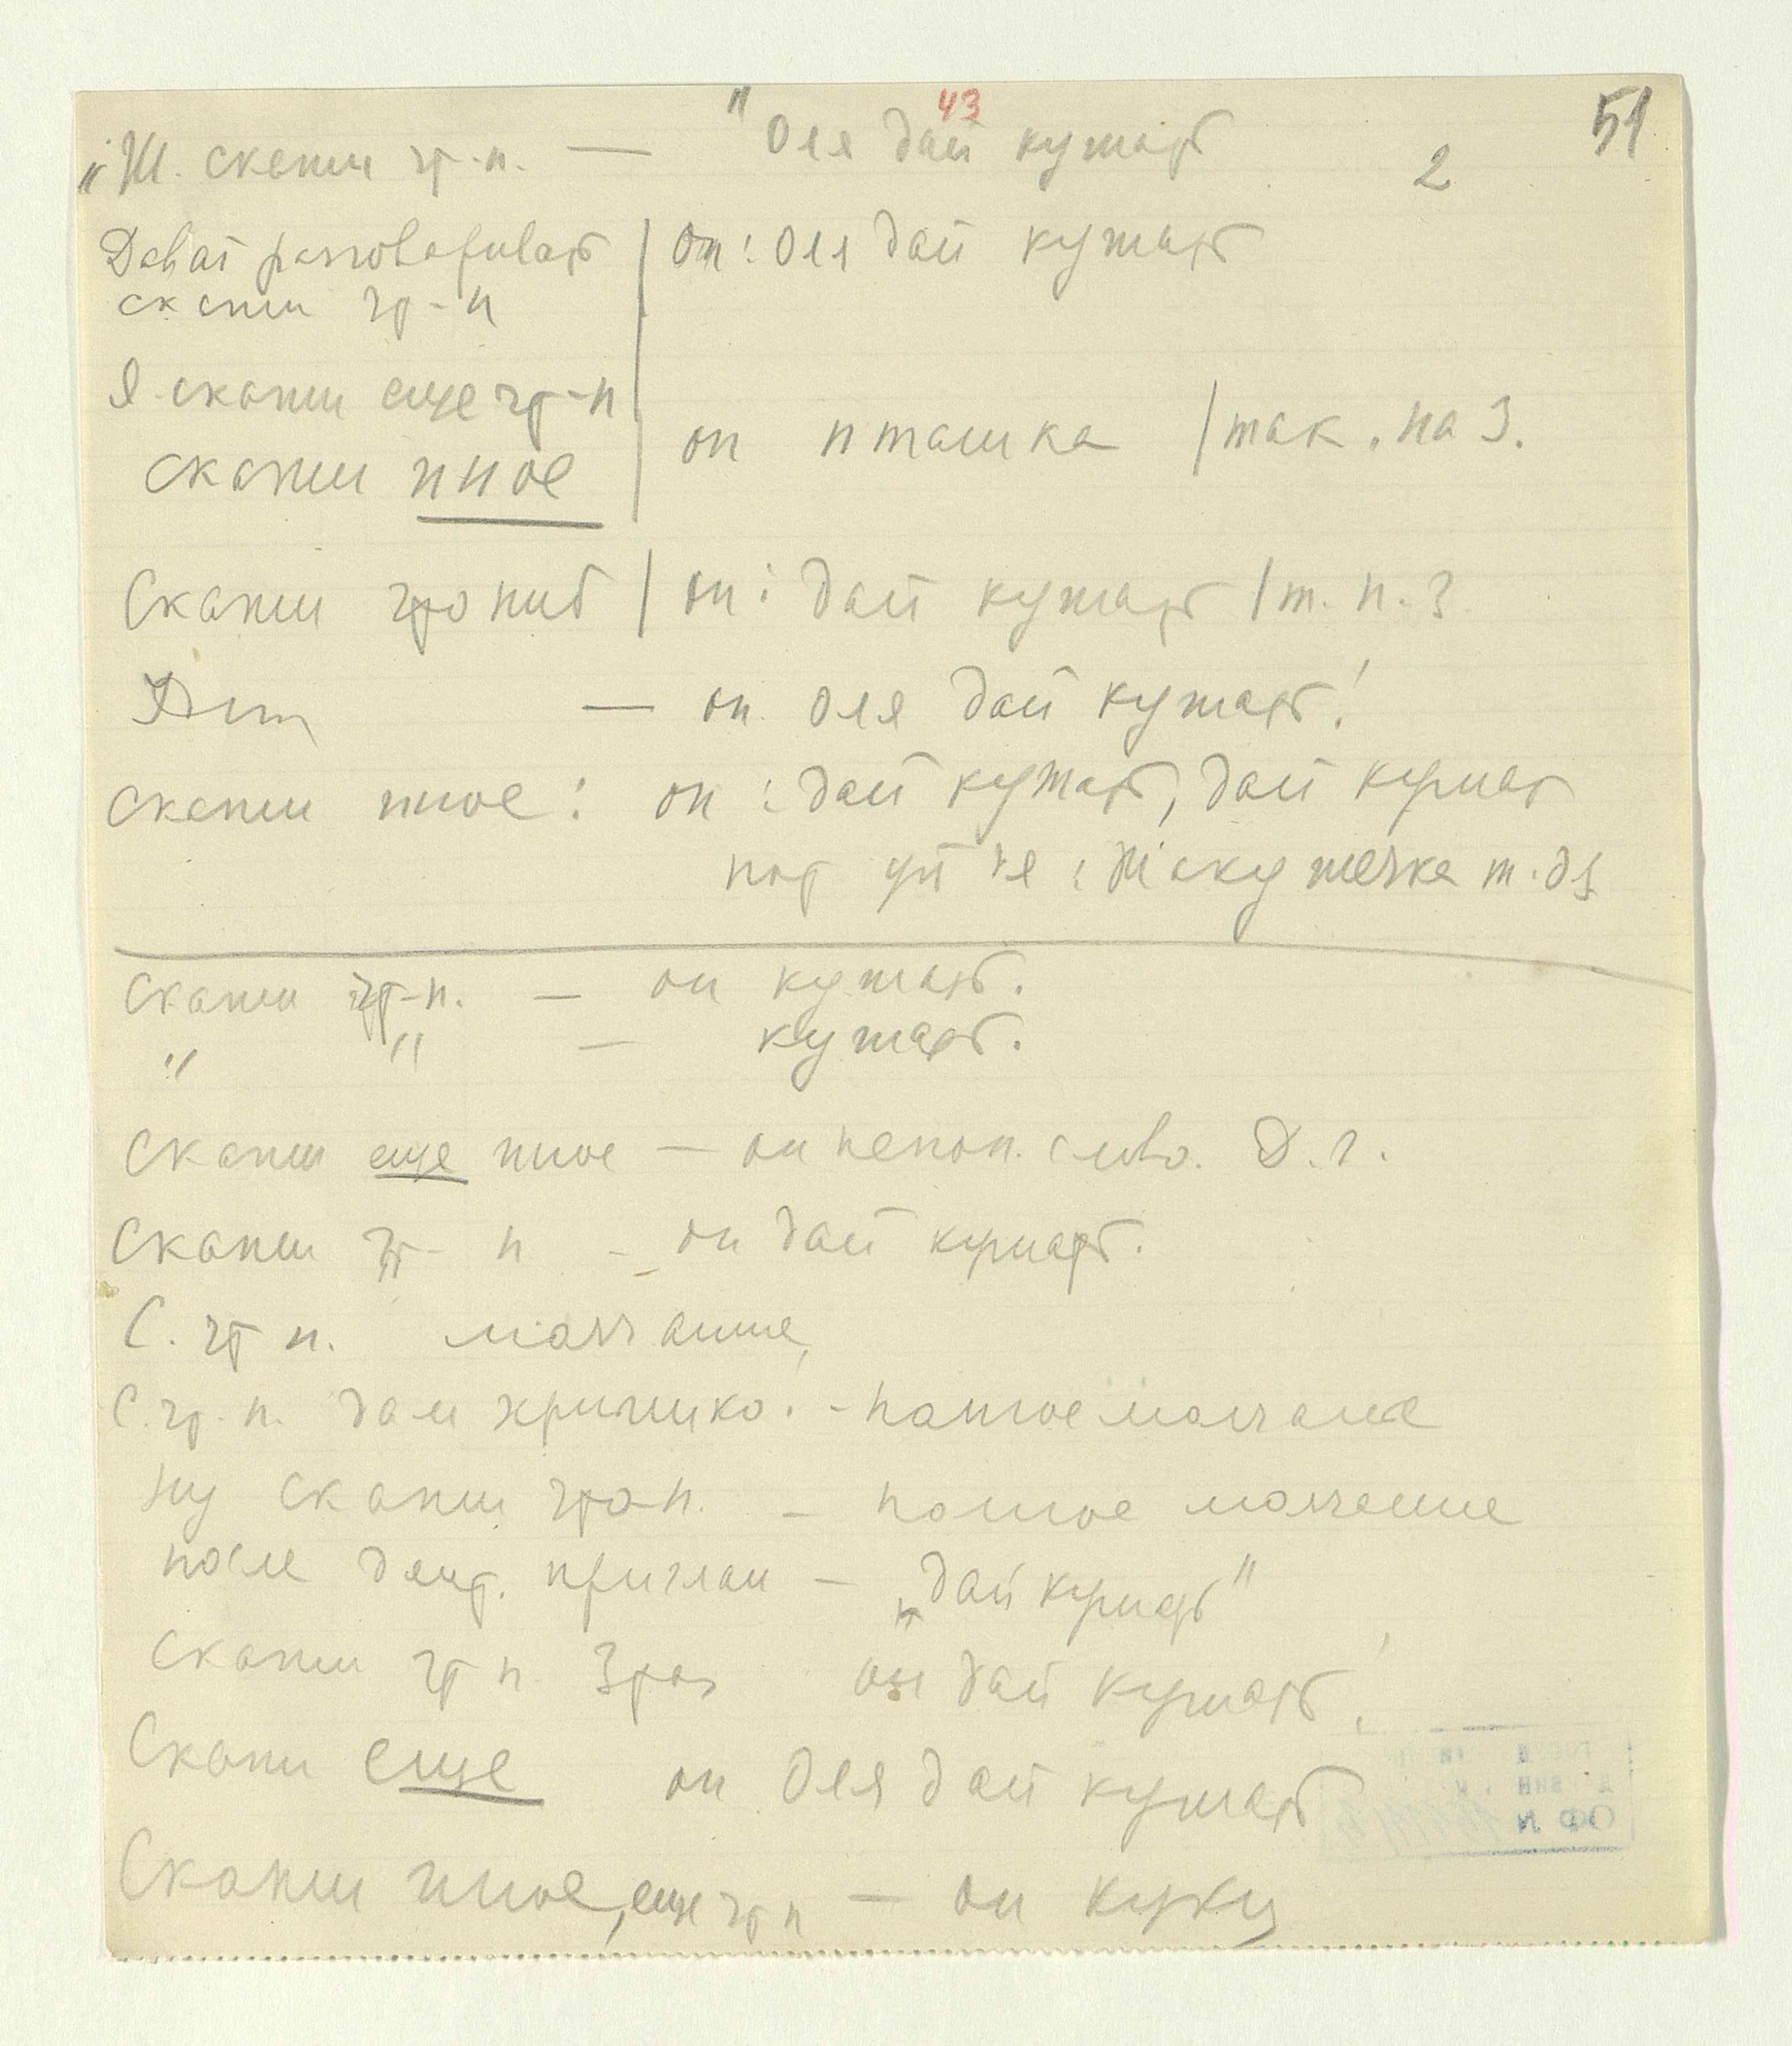 43
51
2
"Ж. скажи гр-п. — "Оля дай кушать
Давай разговаривать | он: Оля дай кушать
скажи гр-п
Я скажи еще гр-п
скажи иное | он пташка / так. на 3.
Скажи громко | он: дай кушать / т. н. 3
— он. Оля дай кушать!
Скажи иное: он: дай кушать, дай кушать
Скажи гр-п. — он кушать.
" " — кушать.
Скажи еще иное — он непон. слово. Д. г.
Скажи гр-п — он дай кушать.
С. гр п. молчание,
С. гр-п. дам — полное молчание
Ну скажи гро-п. — полное молчание
после приглаш — „дай кушать"
Скажи гр п. 3 раз он дай кушать!
Скажи еще он Оля дай кушать
Скажи иное, еще гр п — он куку